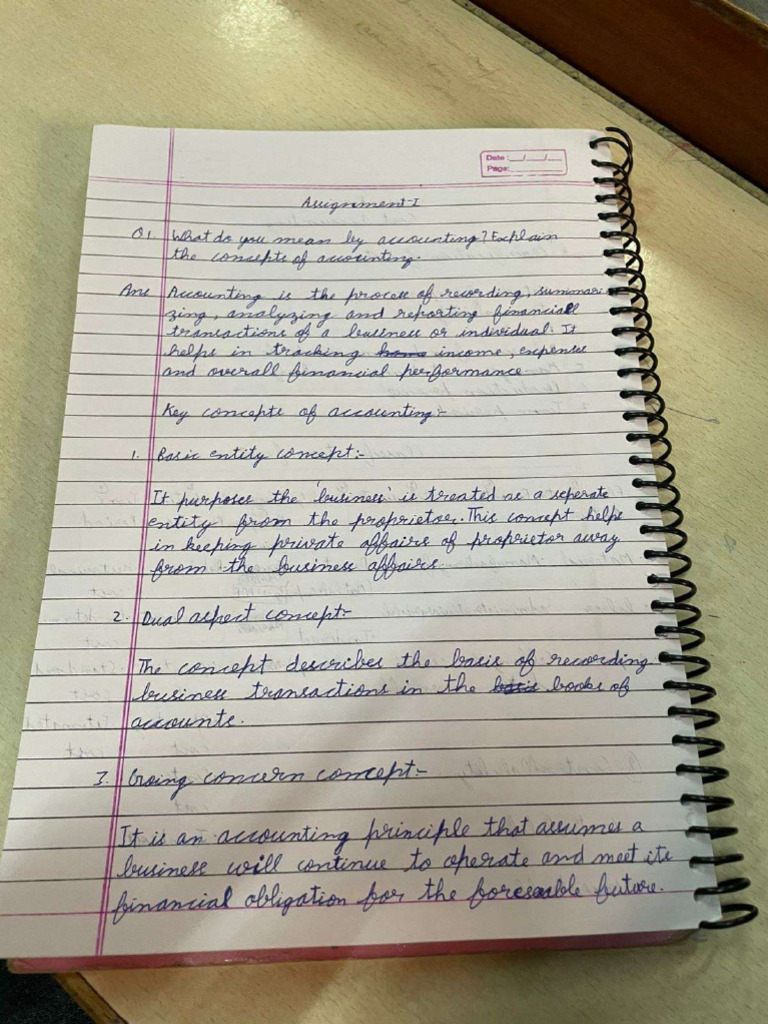 Date :__/__/__
Page:
Assignment-I
Q1. What do you mean by accounting? Explain
the concepts of accounting.
Ans Accounting is the process of recording, summari
zing, analyzing and reporting financial
transactions of a business or individual. It
helps in tracking income, expenses
and overall financial performance
Key concepts of accounting:-
1. Basic entity concept:-
It purposes the 'business' is treated as a seperate
entity from the proprietor. This concept helps
in keeping private affairs of proprietor away
from the business affairs.
2. Dual aspect concept:-
The concept describes the basis of recording
business transactions in the basis books of
accounts.
3. Going concern concept:-
It is an accounting principle that assumes a
business will continue to operate and meet its
financial obligation for the foreseable future.